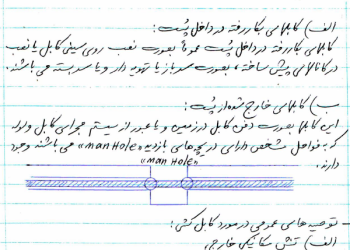 الف) کابلهای بکار رفته در داخل پست:
کابلهای بکار رفته در داخل پست عموماً بصورت نصب روی سینی کابل یا نصب
در کانالهای پیش ساخته، بصورت سرباز یا تهویه دار و یا سربسته می باشند.
ب) کابلهای خارج شده از پست:
این کابلها بصورت دفن کابل در زمین و یا عبور از سیستم مجرای کابل و لوله
که به فواصل مشخص دارای دریچه های بازدید «man Hole» می باشند وجود
دارند.
«man Hole»
- توصیه های عمومی در مورد کابل کشی:
الف) تنش مکانیکی خارجی